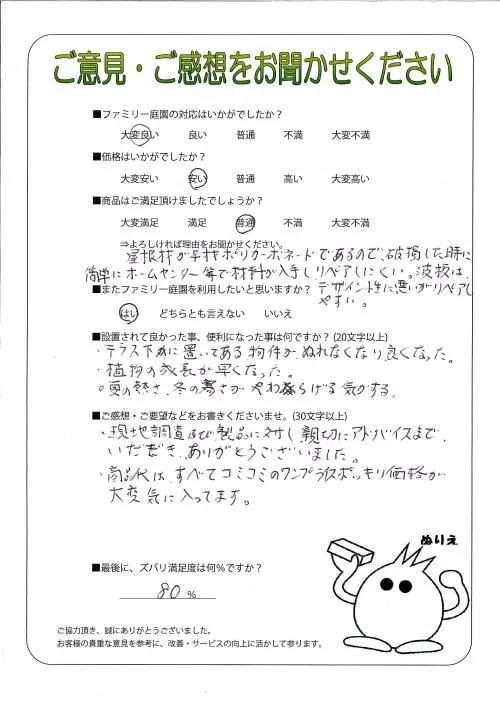 ご意見・ご感想をお聞かせください
■ファミリー庭園の対応はいかがでしたか？
大変良い 良い 普通 不満 大変不満
■価格はいかがでしたか？
大変安い 安い 普通 高い 大変高い
■商品はご満足頂けましたでしょうか？
大変満足 満足 普通 不満 大変不満
⇒よろしければ理由をお聞かせください。
屋根材が平板ポリカーボネードであるので、破損した時に
簡単にホームセンター等で材料が入手しリペアしにくい。波板は、
デザイン性に悪いがリペアし
やすい。
■またファミリー庭園を利用したいと思いますか？
はい どちらとも言えない いいえ
■設置されて良かった事、便利になった事は何ですか？(20文字以上)
・テラス下に置いてある物件が、ぬれなくなり良くなった。
・植物の成長が早くなった。
・夏の熱さ、冬の寒さがやわらげる気がする。
■ご感想・ご要望などをお書きくださいませ。(30文字以上)
・現地調査及び製品に対し親切にアドバイスまで
いただき、ありがとうございました。
・商品代は、すべてコミコミのワンプライスポッキリ価格が
大変気に入ってます。
ぬりえ
■最後に、ズバリ満足度は何％ですか？
80 %
ご協力頂き、誠にありがとうございました。
お客様の貴重な意見を参考に、改善・サービスの向上に活かして参ります。